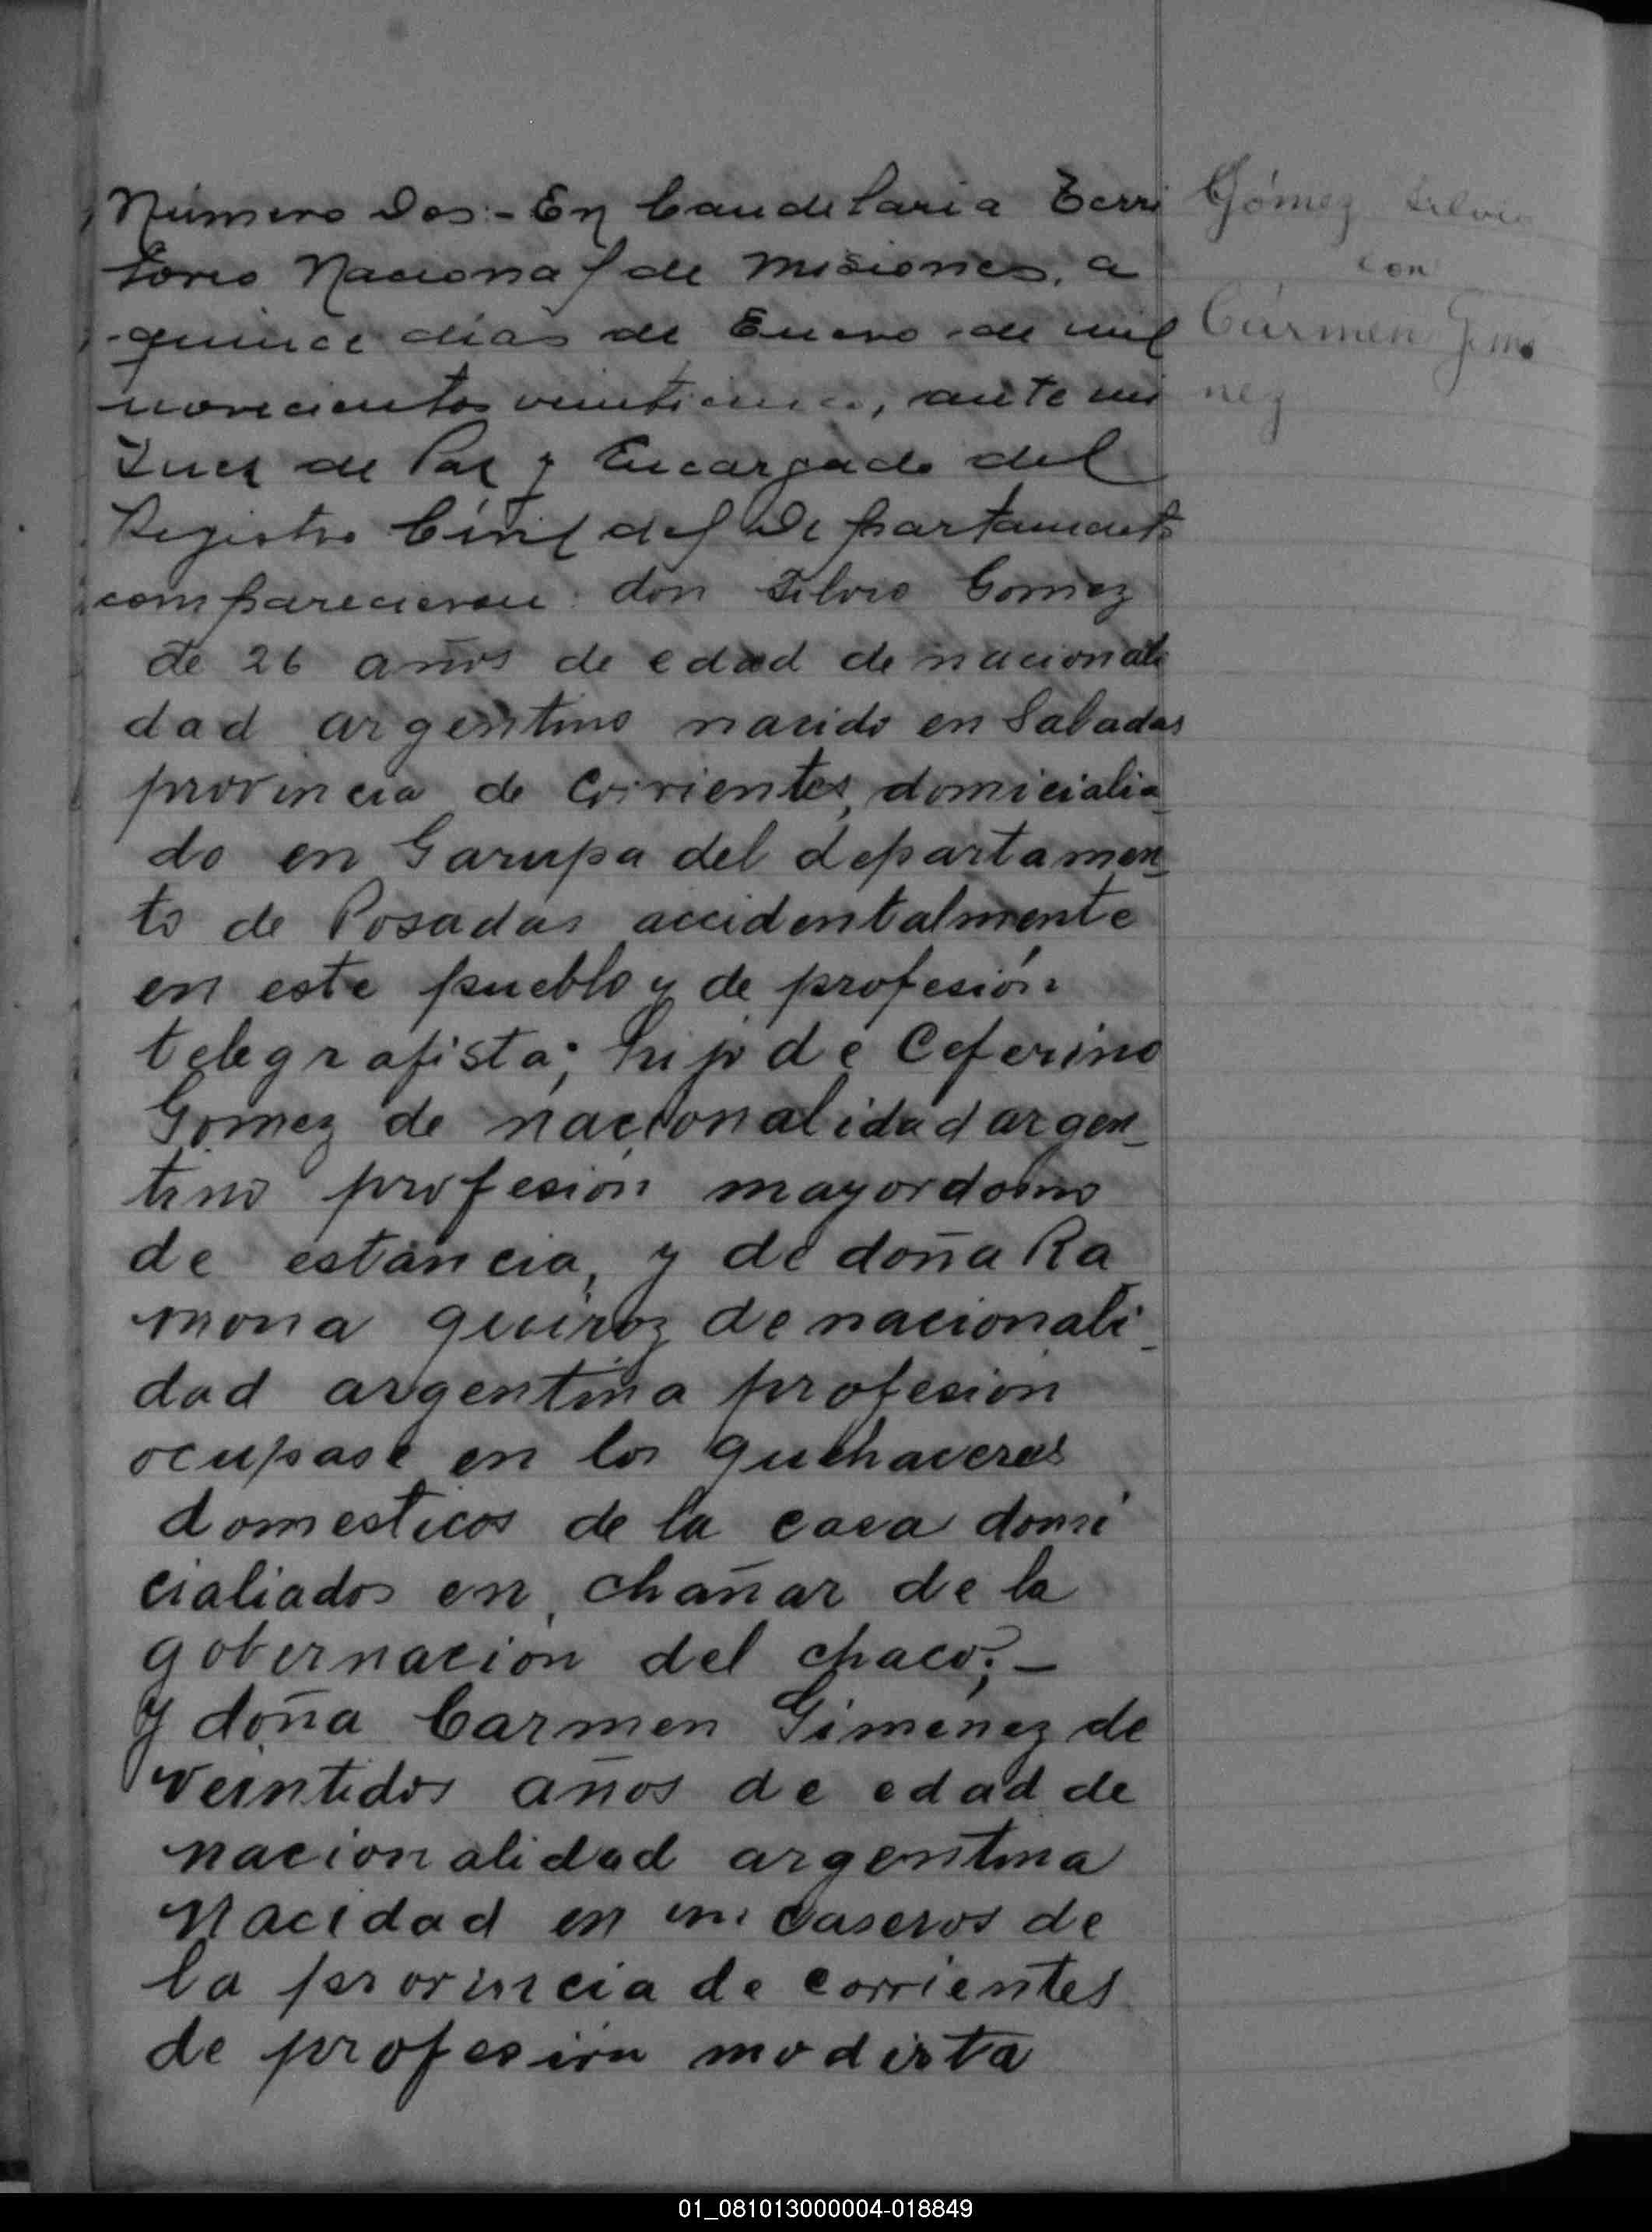 Número Dos.- En Candelaria Terri
torio Nacional de Misiones, a
quince dias de Enero de mil
novecientos veinticinco, ante mi
Juez de Paz y Encargado del
Registro Civil del Departamento
comparecieron: don Silvio Gomez
de 26 años de edad de nacionali
dad argentino nacido en Saladas
provincia de Corrientes, domicialia_
do en Garupa del departamen_
to de Posadas accidentalmente
en este pueblo y de profesión
telegrafista; hijo de Ceferino
Gomez de nacionalidad argen_
tino profesión mayordomo
de estancia, y de doña Ra
mona quiroz de nacionali_
dad argentina profesion
ocupase en los quehaceres
domesticos de la casa domi
cialiados en chañar de la
gobernación del chaco;_
y doña Carmen Gimenez de
veintidos años de edad de
nacionalidad argentina
Nacidad en Caseros de
la provincia de corrientes
de profesión modista
Gómez Silvio
con
Cármen Jimé
nez
01_081013000004-018849